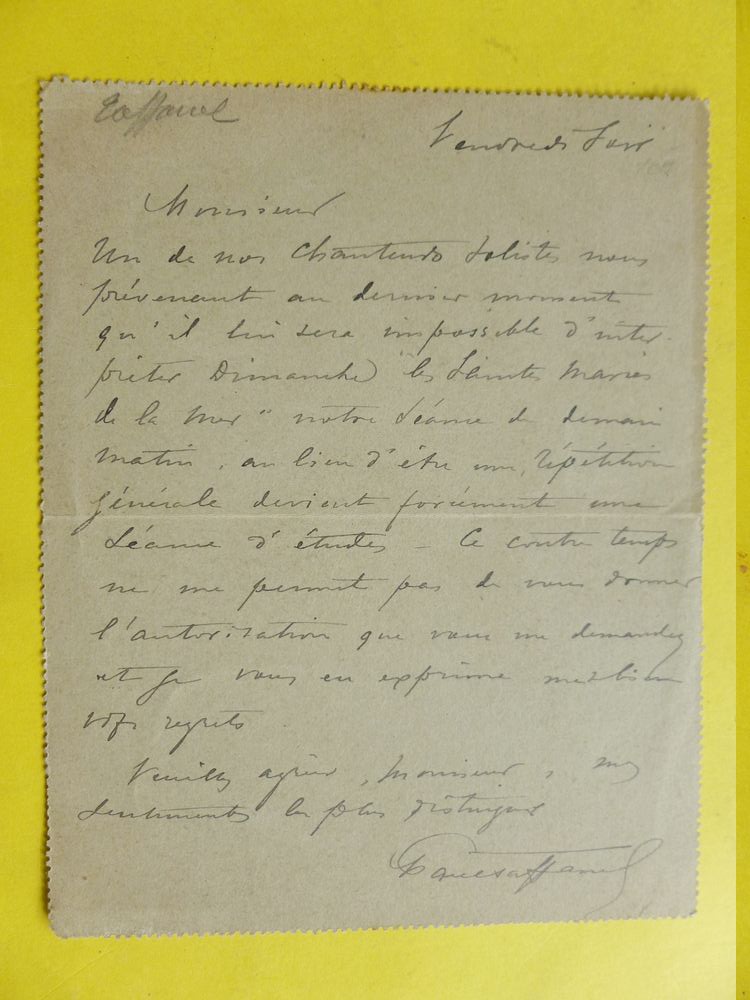 Taffanel
Vendredi soir
Monsieur
Un de nos chanteurs solistes nous
prévenant au dernier moment
qu'il lui sera impossible d'inter-
prêter Dimanche "les Saintes Maries
de la Mer" notre séance de demain
matin, au lieu d'être une répétition
générale devient forcément une
séance d'études - Ce contre temps
ne me permet pas de vous donner
l'autorisation que vous me demandez
et je vous en exprime mes bien
vifs regrets.
Veuillez agréer, Monsieur, mes
sentiments les plus distingués
Paul Taffanel